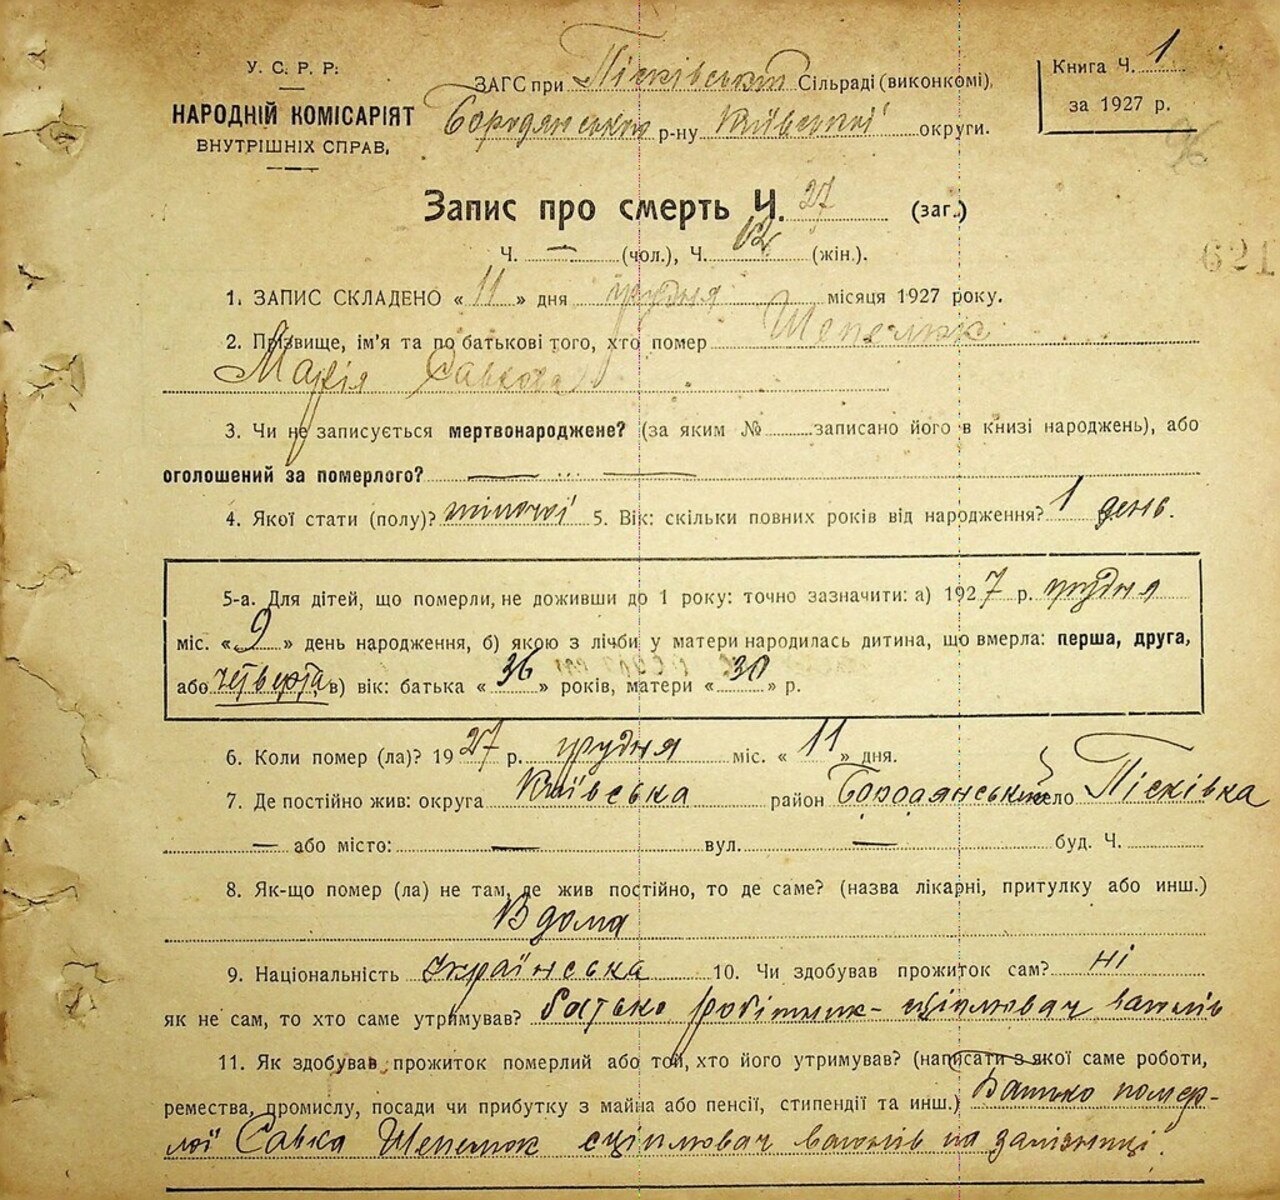 У. С. Р. Р.
НАРОДНІЙ КОМІСАРІЯТ
ВНУТРІШНІХ СПРАВ.
ЗАГС при Пісківській Сільраді (виконкомі),
Бородянського р-ну Київської округи.
Книга Ч. 1
за 1927 р.
621
Запис про смерть Ч. 27 (заг.)
Ч. — (чол.), Ч. 12 (жін.).
1. ЗАПИС СКЛАДЕНО « 11 » дня грудня місяця 1927 року.
2. Прізвище, ім'я та по батькові того, хто помер Шепелюк
Марія Савкова
3. Чи не записується мертвонароджене? (за яким № записано його в книзі народжень), або
оголошений за померлого? — —
4. Якої стати (полу)? жіночої 5. Вік: скільки повних років від народження? 1 день.
5-а. Для дітей, що померли, не доживши до 1 року: точно зазначити: а) 1927 р. грудня
міс. « 9 » день народження, б) якою з лічби у матери народилась дитина, що вмерла: перша, друга,
або четверта в) вік: батька « 36 » років, матери « 30 » р.
6. Коли помер (ла)? 1927 р. грудня міс. « 11 » дня.
7. Де постійно жив: округа Київська район Бородянський село Пісківка
— або місто: — вул. — буд. Ч.
8. Як-що помер (ла) не там, де жив постійно, то де саме? (назва лікарні, притулку або инш.)
Вдома
9. Національність Українська 10. Чи здобував прожиток сам? ні
як не сам, то хто саме утримував? батько робітник- сціплювач вагонів
11. Як здобував прожиток померлий або той, хто його утримував? (написати з якої саме роботи,
ремества, промислу, посади чи прибутку з майна або пенсії, стипендії та инш.) Батько помер-
лої Савка Шепелюк сціплювач вагонів на залізниці.